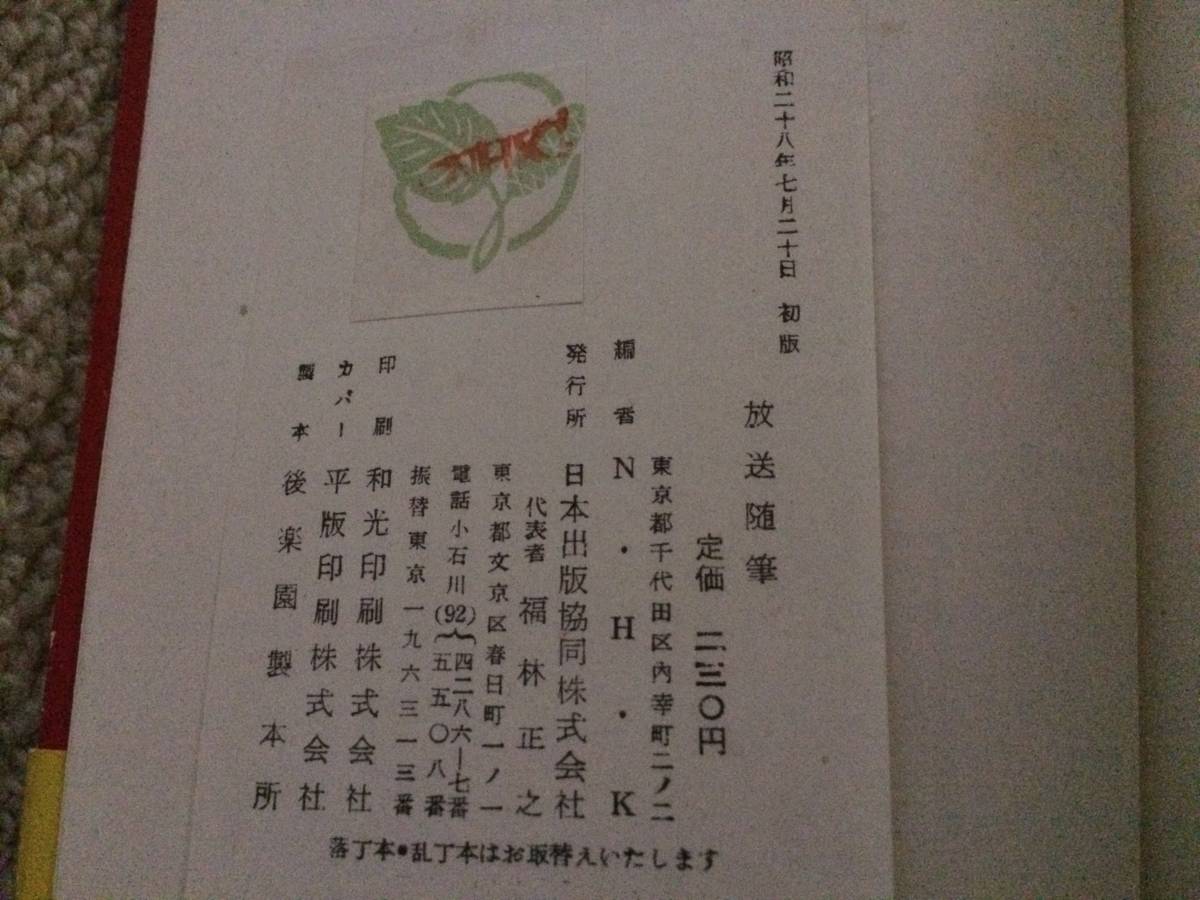 昭和二十八年七月二十日　初版
放送随筆
定価　二三〇円
東京都千代田区内幸町二ノ二
編者　N・H・K
発行所　日本出版協同株式会社
代表者　福林正之
東京都文京区春日町一ノ一
電話小石川(92){四二八六ー七番
五五〇八番
振替東京一九六三一三番
印刷　和光印刷株式会社
カバー　平版印刷株式会社
製本　後楽園製本所
落丁本●乱丁本はお取替えいたします
NHK